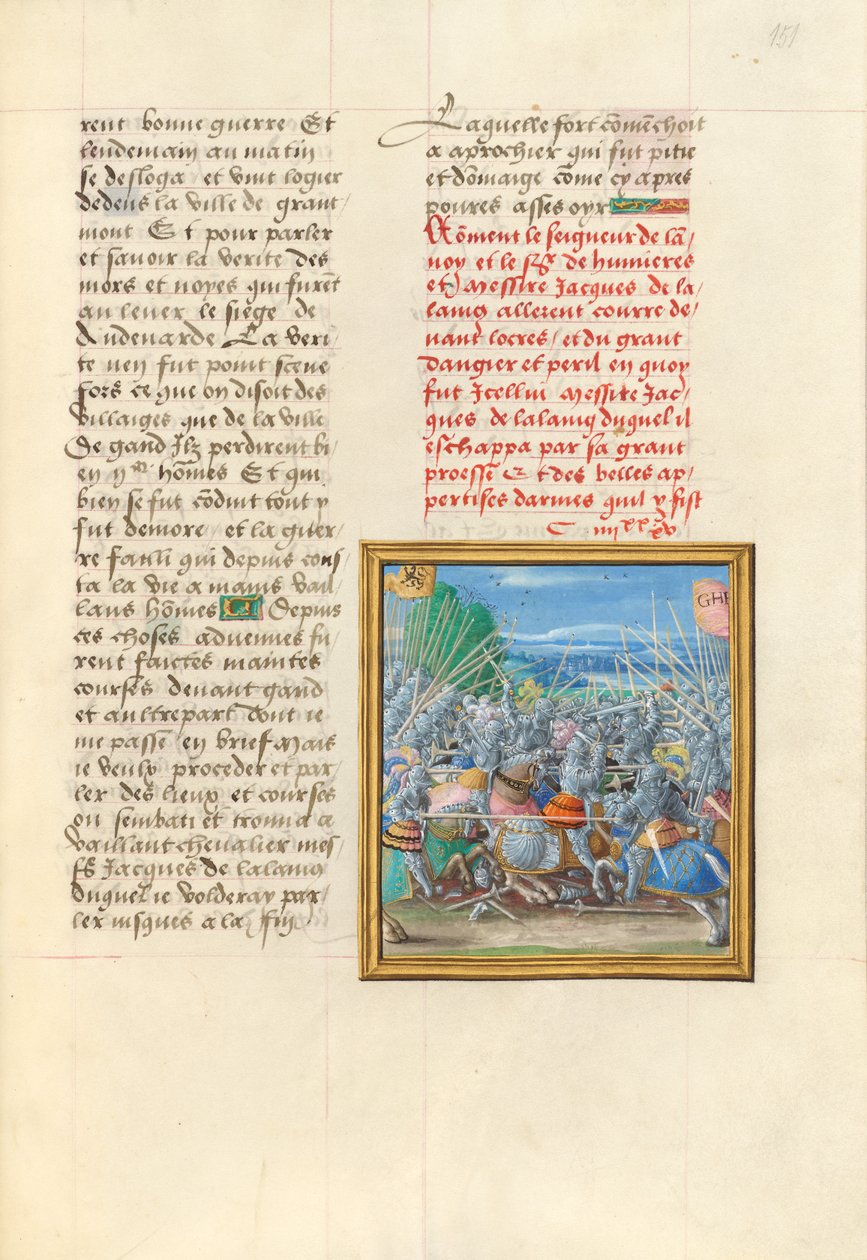 151
rent bonne guerre Et
lendemain au matin
se desloga et vint logier
dedens la ville de grant/
mont Et pour parler
et sauoir la verite des
mors et noyes qui furent
au leuer le siege de
Audenarde La veri/
te nen fut point sceue
fors ce que on disoit des
villaiges que de la ville
De gand Ilz perdirent bi/
en hõmes Et qui
bien se fut cõduit tout y
fut demore et la guer/
re failli qui depuis cous/
ta la vie a mains vail/
lans hõmes Depuis
ces choses aduenues fu/
rent faictes maintes
courses deuant gand
et aultrepart dont ie
me passe en brief Mais
ie veulx proceder et par/
ler des lieux et courses
ou sembati et trouua a
vaillant cheualier mes/
sẽ Jacques de lalaing
Duquel ie volderay par/
ler iusques a la fin
Laquelle fort cõmenchoit
a aprochier qui fut pitie
et dõmaige cõme cy apres
poures asses oyr
Cõment le seigneur de lã/
noy et le sgr de humieres
et Messire Jacques de la/
laing allerent courre de/
uant locres / et du grant
dangier et peril en quoy
fut Jcellui Messire Jac/
ques de lalaing duquel il
eschappa par sa grant
proesse Et des belles ap/
pertises darmes quil y fist
C iiii xx xv
GHE